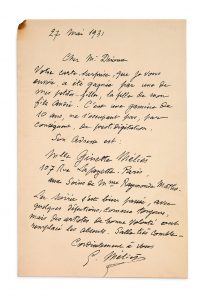 27 Mai 1931
Cher Mr Dicone
Votre carte-surprise, que je vous
envoie, a été gagnée par une de
mes petites-filles, la fille de mon
fils André. C'est une gamine de
10 ans, ne s'occupant pas, par
conséquent, de prestidigitation.
Son adresse est:
Mlle Ginette Méliès
107 Rue Lafayette Paris,
aux Soins de Mme Raymonde Mathis
La soirée s'est bien passée, avec
quelques défections, comme toujours,
mais des artistes de bonne volonté ont
remplacé les absents. Salle très comble.
Cordialement à vous
G. Méliès